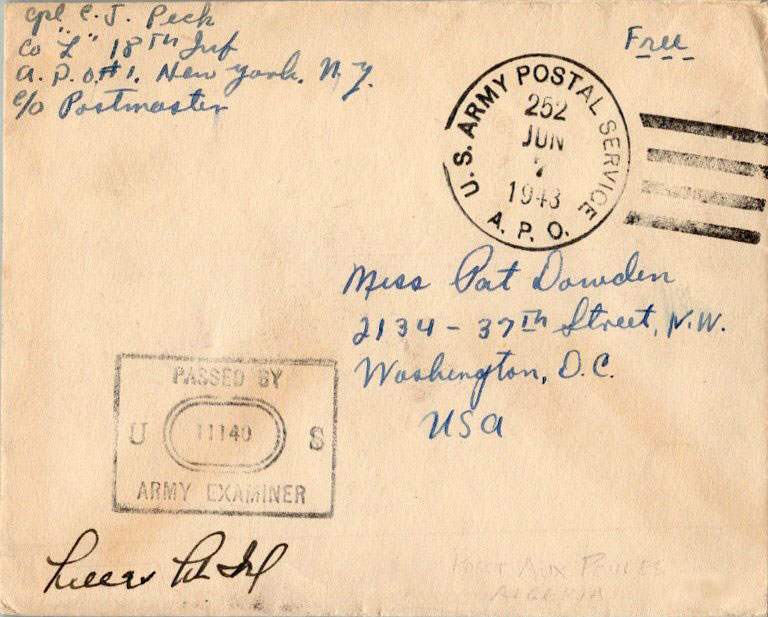 Cpl C. J. Peck
Co "L" 18th Inf
A. P. O. #1. New York. N. Y.
c/o Postmaster
Free
U.S. ARMY POSTAL SERVICE
252
JUN
7
1943
A. P. O.
Miss Pat Dowden
2134 - 37th Street, N.W.
Washington, D.C.
USA
PASSED BY
U 11140 S
ARMY EXAMINER
Port Aux Poules
ALGERIA